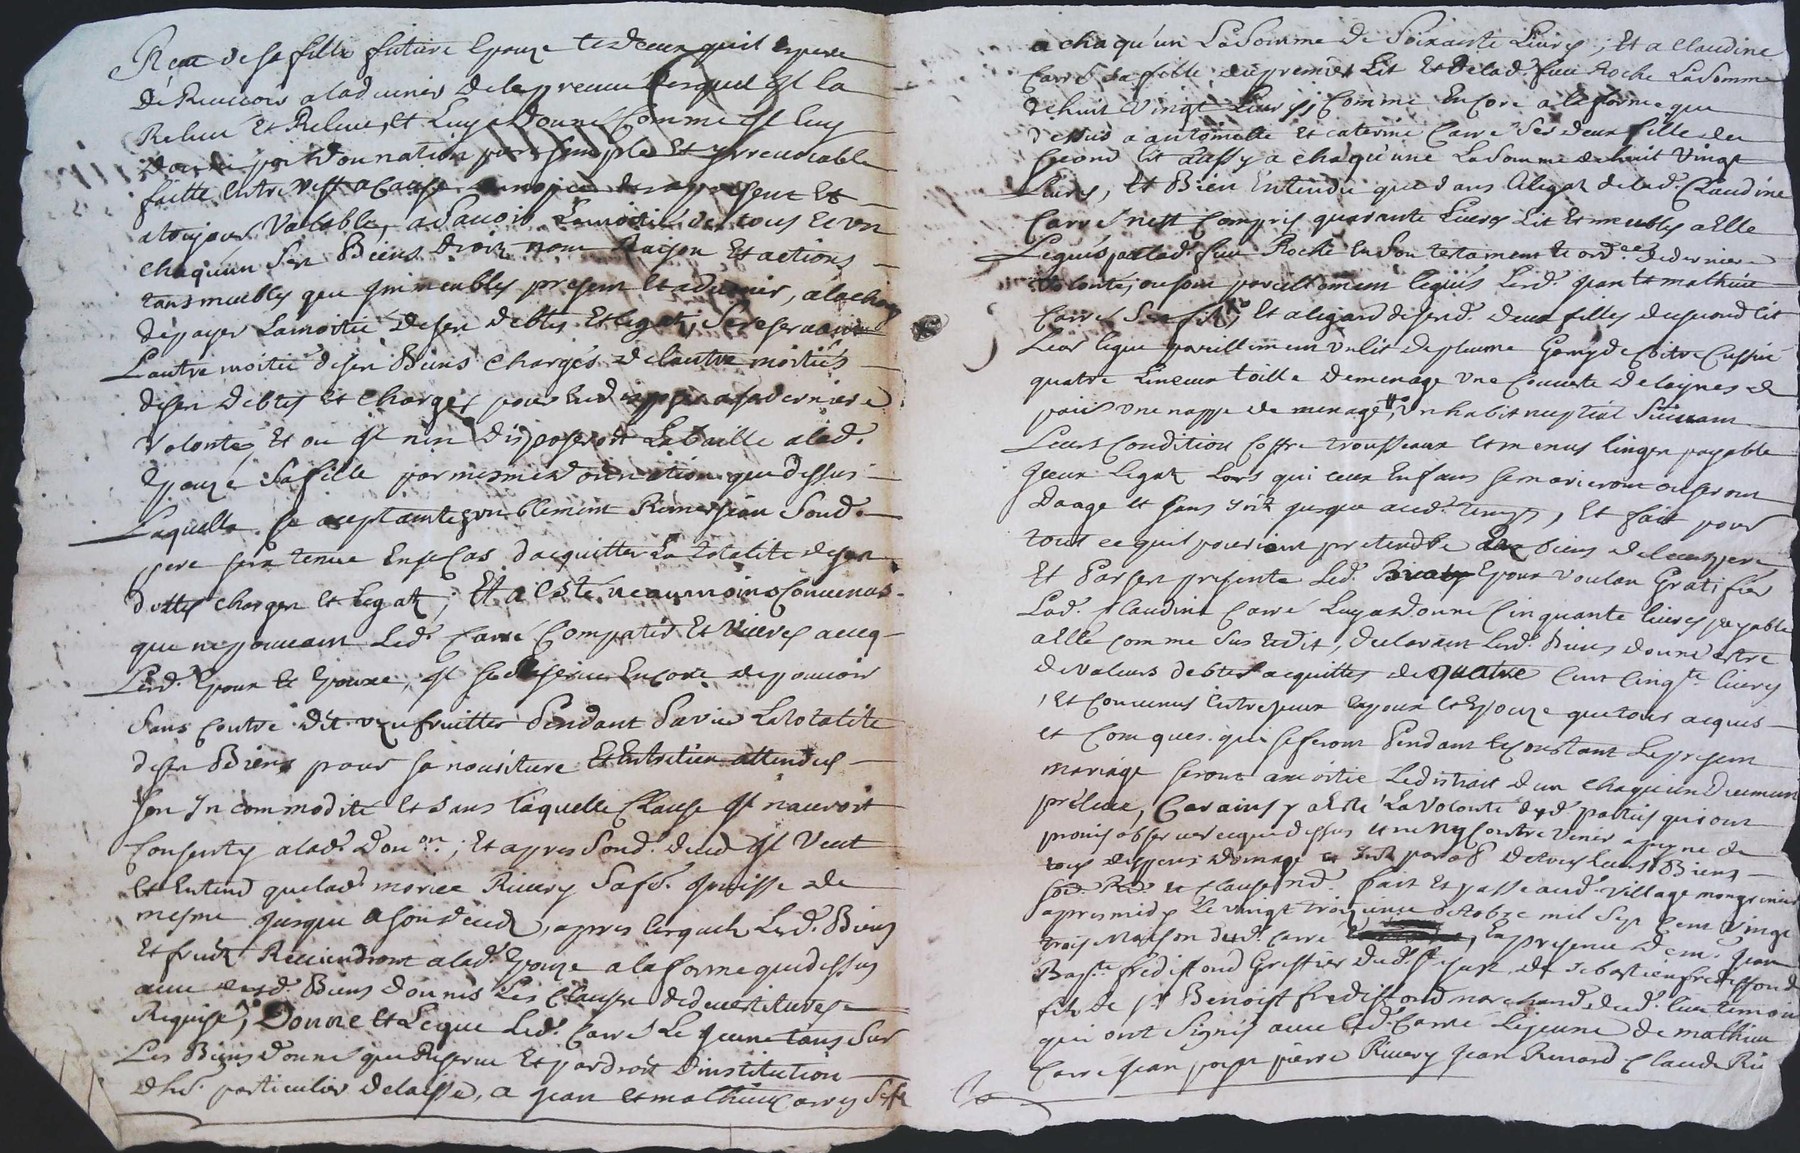 de sa fille future Epouze quil Espere
de Recevoir aladvenir de la preuve Lesquel Il la
Releve Et Releve, Et Luy a donné Comme Il luy
donne par donnation pure simple Et yrrevocable
faitte Entre vifs a Cause de nopces des a present Et
atoujour Valable, a Sauoir Lamoitié de tous Ec un
chaquun Ses Biens droits nom Raison Et actions
tans meubles que Immeubles present Et advenir, alacharge
depayer Lamoitié desen debtes Et legats, Se reservant
Lautre moitié desen Biens chargés delautre moitiés
desen debtes Et Charges pour En disposer a sa derniere
Volonté, Et ou Il nen disposeroit La baille alad.
Epouze Safille par mesmes donnation que dessus
Laquelle ce aceptante humblement Remerciant Sond.
pere sera tenue En ce Cas dacquitter La totalité desen
dettes charges Et legats; Et a Esté neanmoins Convenus
que ne pouvant Led. Carré Compatir Et Vivres avecq
Lesd. Epoux Et Epouze, Il se Reserve Encore depouvoir
Sans Contre dit uzufruitter Pendant Savie La totalité
desen Biens pour sa nouriture Et Entretien attendus
son Incommodité Et sans laquelle Clause Il nauroit
Consenty alad. don.on; Et apres Sond. deced Il Veut
Et Entend quelad. moriee Rivery Safe. Jouisse de
mesme jusque a son deced, apres lesquels Lesd. Biens
Et fruits Reviendront alad. Epouze alaforme quedessus
avec Lesd. Biens donnés Les Clauses dedevestitures
Requise, Donne Et Legue Led. Carré Le jeune tans Sur
Les Biens donné que Reserve Et par droit dinstitution
dhé. particulier delaisse, a Jean Et mathieu Carré Sesf
a chaqu'un La Somme de Soixante Livres; Et a Claudine
Carré Sa fille du premier Lit Et delad. feue Roche La Somme
dehuit Vingt Livres; Comme Encore alaforme que
dessus a antoinette Et caterine Carré Ses deux fille du
segond lit aussy a chaqu'une La Somme dehuit Vingt
Livres, Et Bien Entendu que dans Alegat delad. Claudine
Carré nest Compris quarante Livres Lit Et meubles a Elle
Legués par lad. feue Roche En Son testament Et ord.ce dederniere
Volonté, ou sont pareillement legués Lesd. Jean Et mathieu
Carré Ses fils, Et alegard desesd. deux filles dusecond lit
Leur legue pareillement un lit deplume Garny de Coitre Cussin
quatre Linceux toille demenage Une Couverte delaynes de
pais Une nappe de menage, Un habit nuptial Suivant
Leurs Condition Coffre trousseaux Et menus linges payable
yceux Legats Lors que ceux Enfans semarieront ou seront
Daage Et sans Int. jusque aud. temps, Et fait pour
tout ce quil pouroient pretendre Aux biens de leursd pere
Et Par ses presente Led. Epoux voulan Gratifier
Lad. Claudine Carré Luy a donné Cinquante livres payable
a Elle Comme Sus Est dit, declarant Lesd. Biens donné Estre
de Valeurs debtes acquittés de quatre Cent Cinq.te livres
Et Convenus Entre yceux Epoux Et Epouze que tous acquis
Et Conques. que se feront Pendant Et Constant Le present
mariage seront amoitié Le distrait dun chaqu'un
prélevé, Car ainsy a Esté La Volonté desd. parties qui ont
promis observer ce que dessus Et ne ny Contre Venir apeyne de
tous despens domage Et Int. par ob. detous Leurs Biens
Et Clause nd. fait Et passé aud. Village
apresmidy Le vingt trois octobre mil Sept Cent Vingt
trois Maison dud. Carré, En presence de m.e Jean
Bap.te fredifond Greffier de Sebastien fredifond
fils de S.r Benoist fredifond marchand
qui ont Signés avec led. Carré Lejeune de mathieu
Carré Jean page pierre Rivery Jean Renard Claude Ri